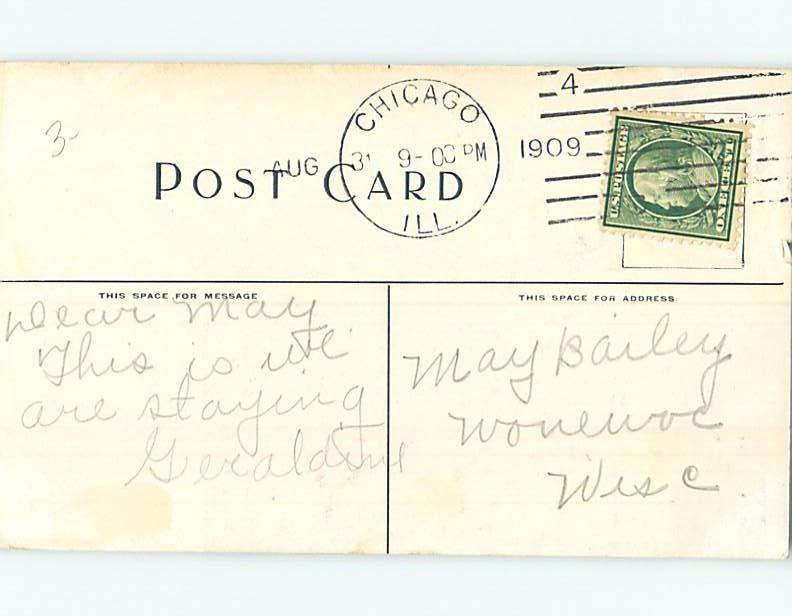 3-
CHICAGO
AUG 31 9-00 PM 1909
ILL.
4
U.S. POSTAGE
ONE CENT
POST CARD
THIS SPACE FOR MESSAGE
Dear May
This is
are staying
Geraldine
THIS SPACE FOR ADDRESS
May Bailey
Wonewoc
Wisc